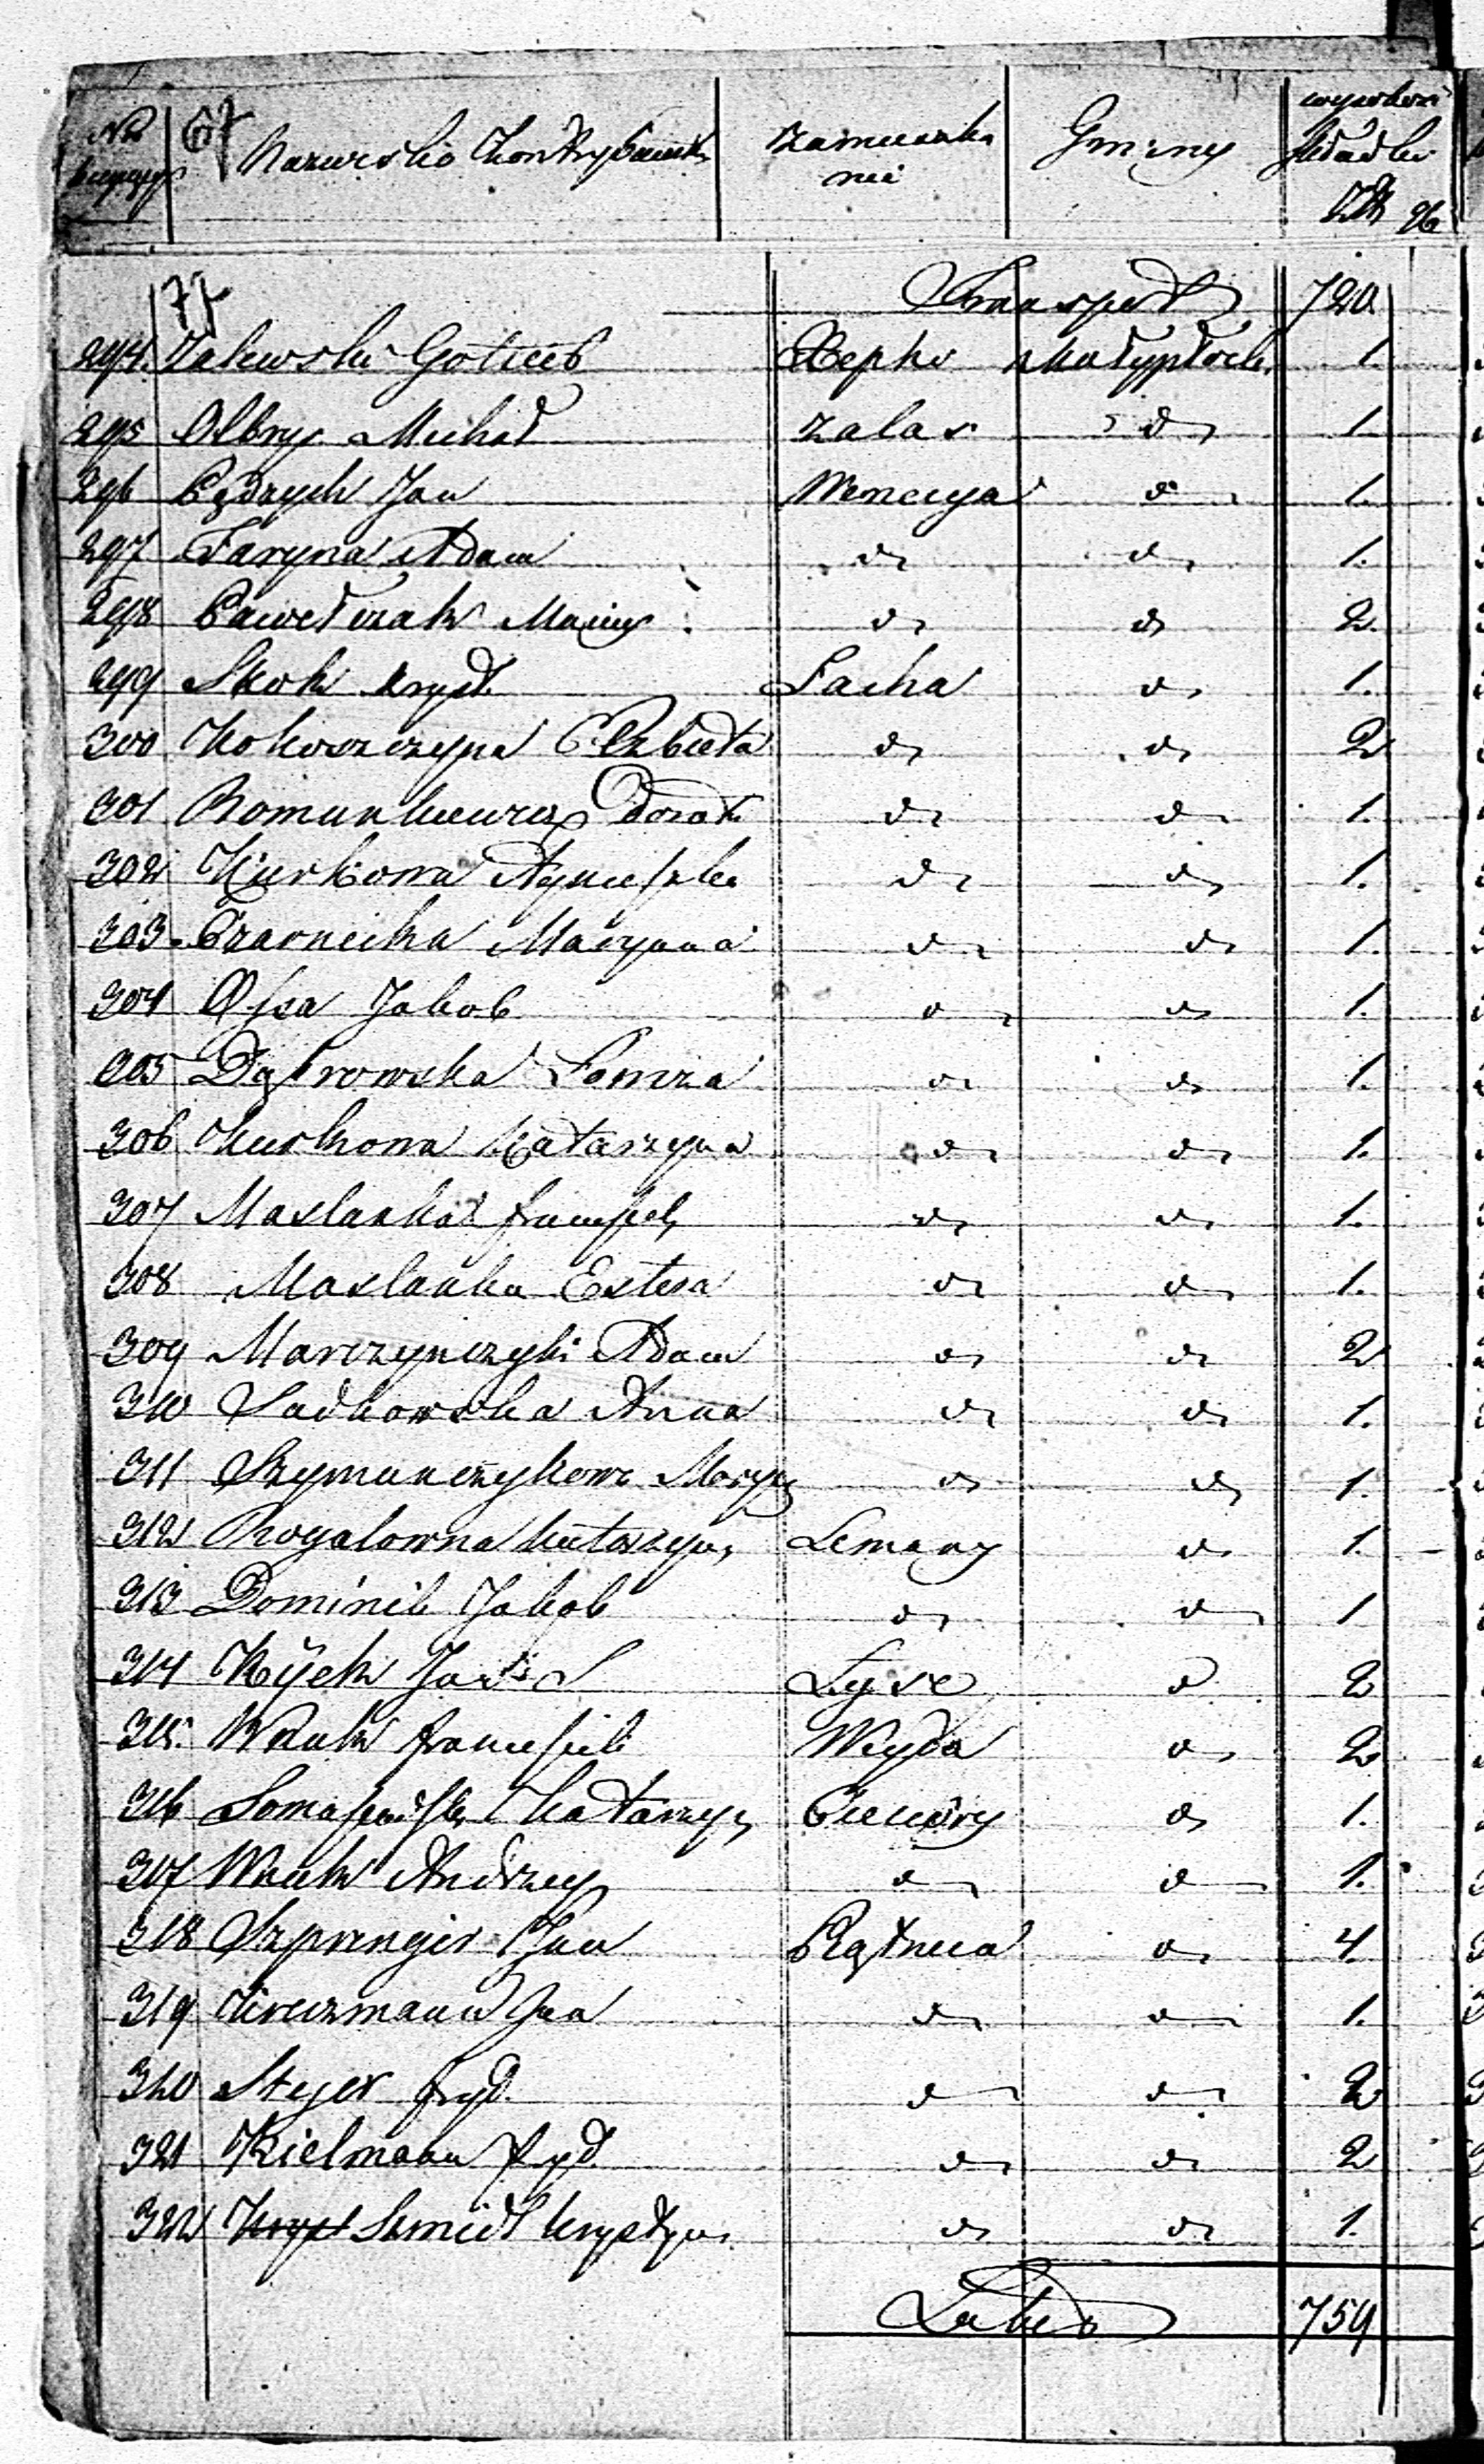 Nr Nazwisko Kontrybuenta Zamieszka Gminy wysokość
bieżący nie składki
Złt gr
Transport 720
294 Zalewski Gotlieb 1.
295 Olbryś Michał Zalas do 1.
296 Pędzych Jan Wenecya do 1.
297 Faryna Adam do do 1.
298 Pawełczak Maciey do do 2.
299 Skok Kryst. Łacha do 1.
300 Kokoszczyna Elzbieta do do 2
301 Romunkiewicz Dorot. do do 1.
302 Kurkowa Agnieszka do do 1.
303 Czarnecka Maryana do do 1.
304 Jakob do do 1.
305 Dąbrowska Łomza do do 1.
306 Kurkowa Katarzyna do do 1.
307 Maslanka do do 1.
308 Maslanka Estera do do 1.
309 Marczynczyk Adam do do 2
310 Sadkowska Anna do do 1.
311 Szymanczykowa do do 1.
312 Rogalowna Katarzyn. Lemany do 1.
313 Dominik Jakob do do 1
314 Kijek Łyse do 2
315 Wnuk Franciszek Weyda do 2
316 Katarzyn. Cieciory do 1.
317 Wnuk Andrzey do do 1.
318 Szprengier Jan Piątnica do 4.
319 Jan do do 1.
320 Steyer Fryd. do do 2
321 Kielmann Fryd. do do 2
322 Kryst Szmidt Krystyn. do do 1.
Latus 759